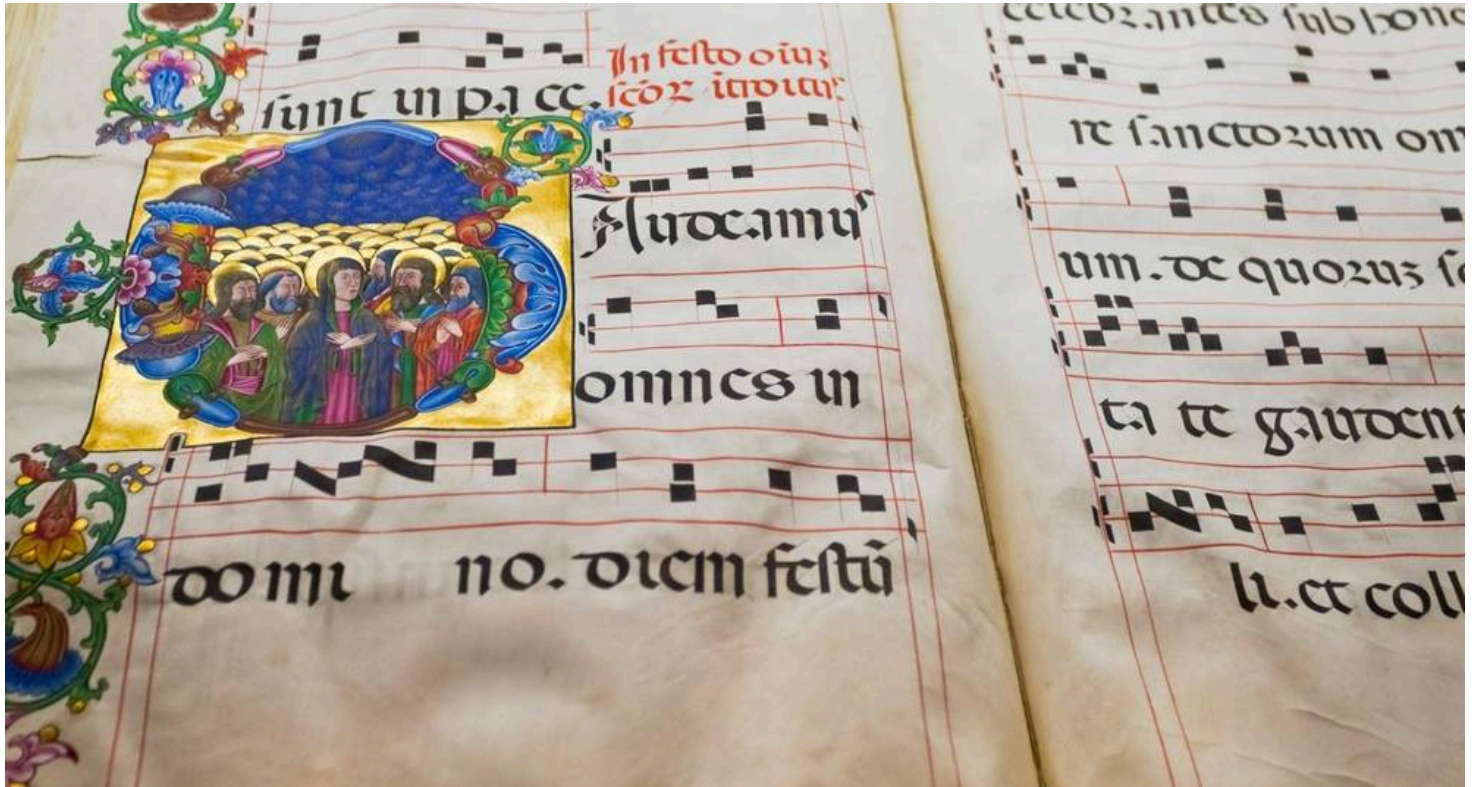 sunt in pa ce.
In festo oīuz
scōꝝ ītroitus
G Audeamus
omnes in
domi no. diem festū
celebrantes sub hono
re sanctorum om
um. de quoruz so
ta te gaudent
li. et coll